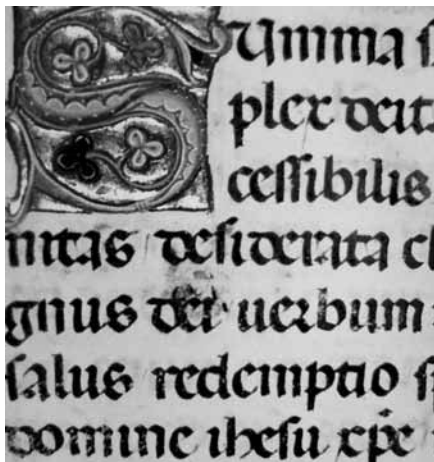 Summa s
plex deit
cessibilis
nitas desiderata cl
gnus dei uerbum
salus redemptio s
domine ihesu xpe